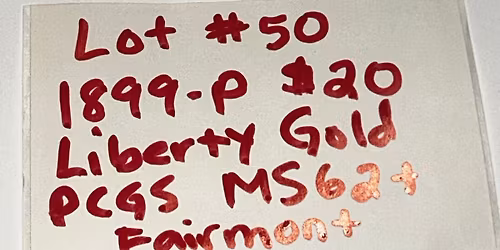 Lot #50
1899-P $20
Liberty Gold
PCGS MS62+
Fairmont